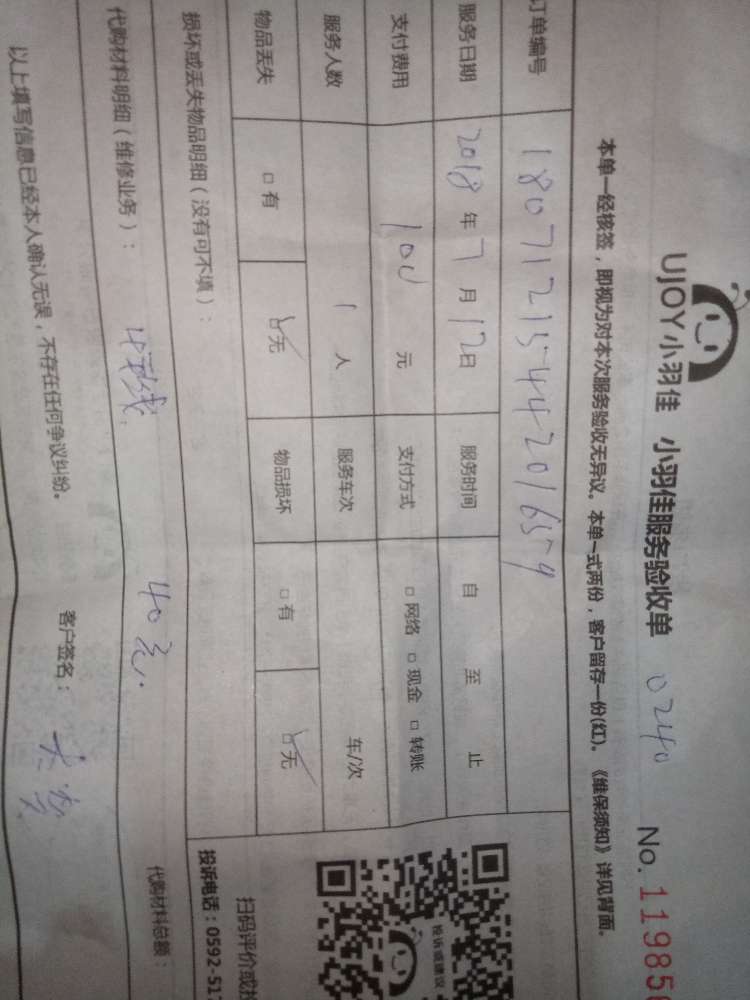 UJOY小羽佳 小羽佳服务验收单 0240 No.11985
本单一经核签，即视为对本次服务验收无异议。本单一式两份，客户留存一份(红)。《维保须知》详见背面。
订单编号 180712154420165 9
服务日期 2018年7月12日 服务时间 自 至 止
支付费用 100元 支付方式 □网络 □现金 □转账
服务人数 1人 服务车次 车/次
物品丢失 □有 ☑无 物品损坏 □有 ☑无
损坏或丢失物品明细（没有可不填）：
代购材料明细（维修业务）： 40元. 代购材料总额：
以上填写信息已经本人确认无误，不存在任何争议纠纷。 客户签名：
投诉或建议
扫码评价或投
投诉电话：0592-51